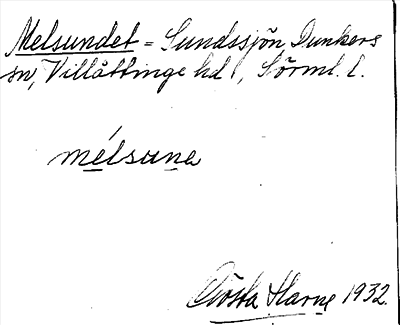 Melsundet = Sundssjön, Dunkers
sn, Villåttinge hd, Sörml. l.
mélsuna
Gösta Harne 1932.